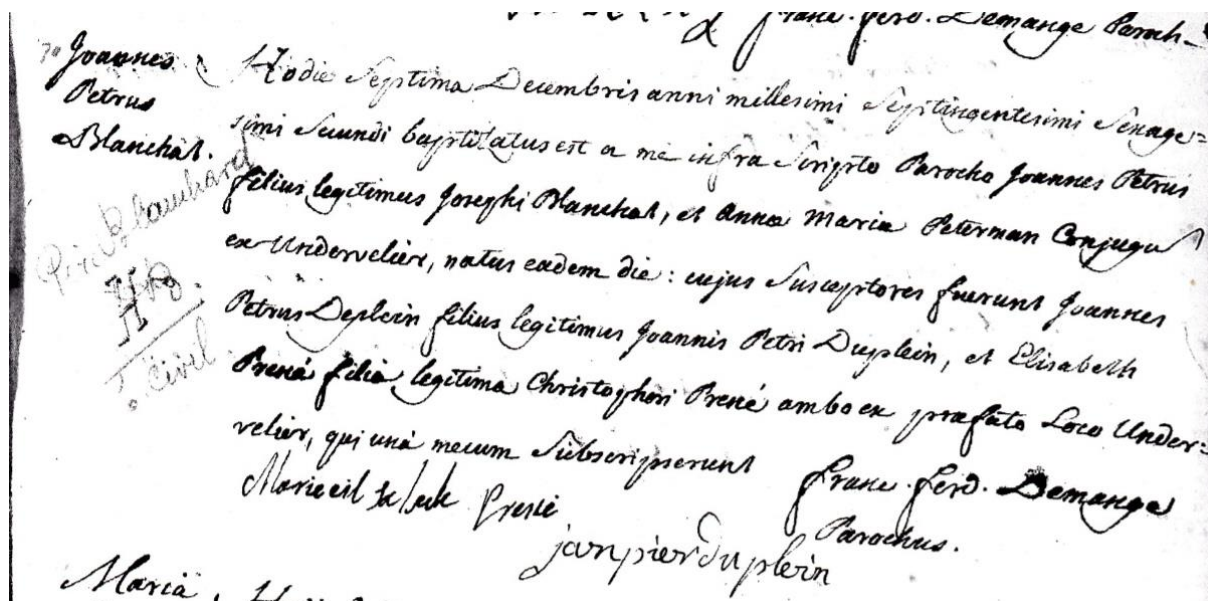 Franc. Ferd. Demange Paroch-
Joannes
Petrus
Blanchat.
Hodie Septima Decembris anni millesimi Septingentesimi Sexage=
simi Secundi baptisatus est a me infra Scripto Parocho Joannes Petrus
filius legitimus Josephi Blanchat, et Anna Maria Peterman Conjugu
ex Undervelier, natus eadem die: cujus Susceptores fuerunt Joannes
Petrus Deplein filius legitimus Joannis Petri Duplein, et Elisabeth
Presié filia legitima Christophori Presié ambo ex præfato Loco Under=
velier, qui unà mecum Subscripserunt
Blanchard
Civil
Presié
Franc. Ferd. Demange
Parochus.
jan pier du plein
Maria